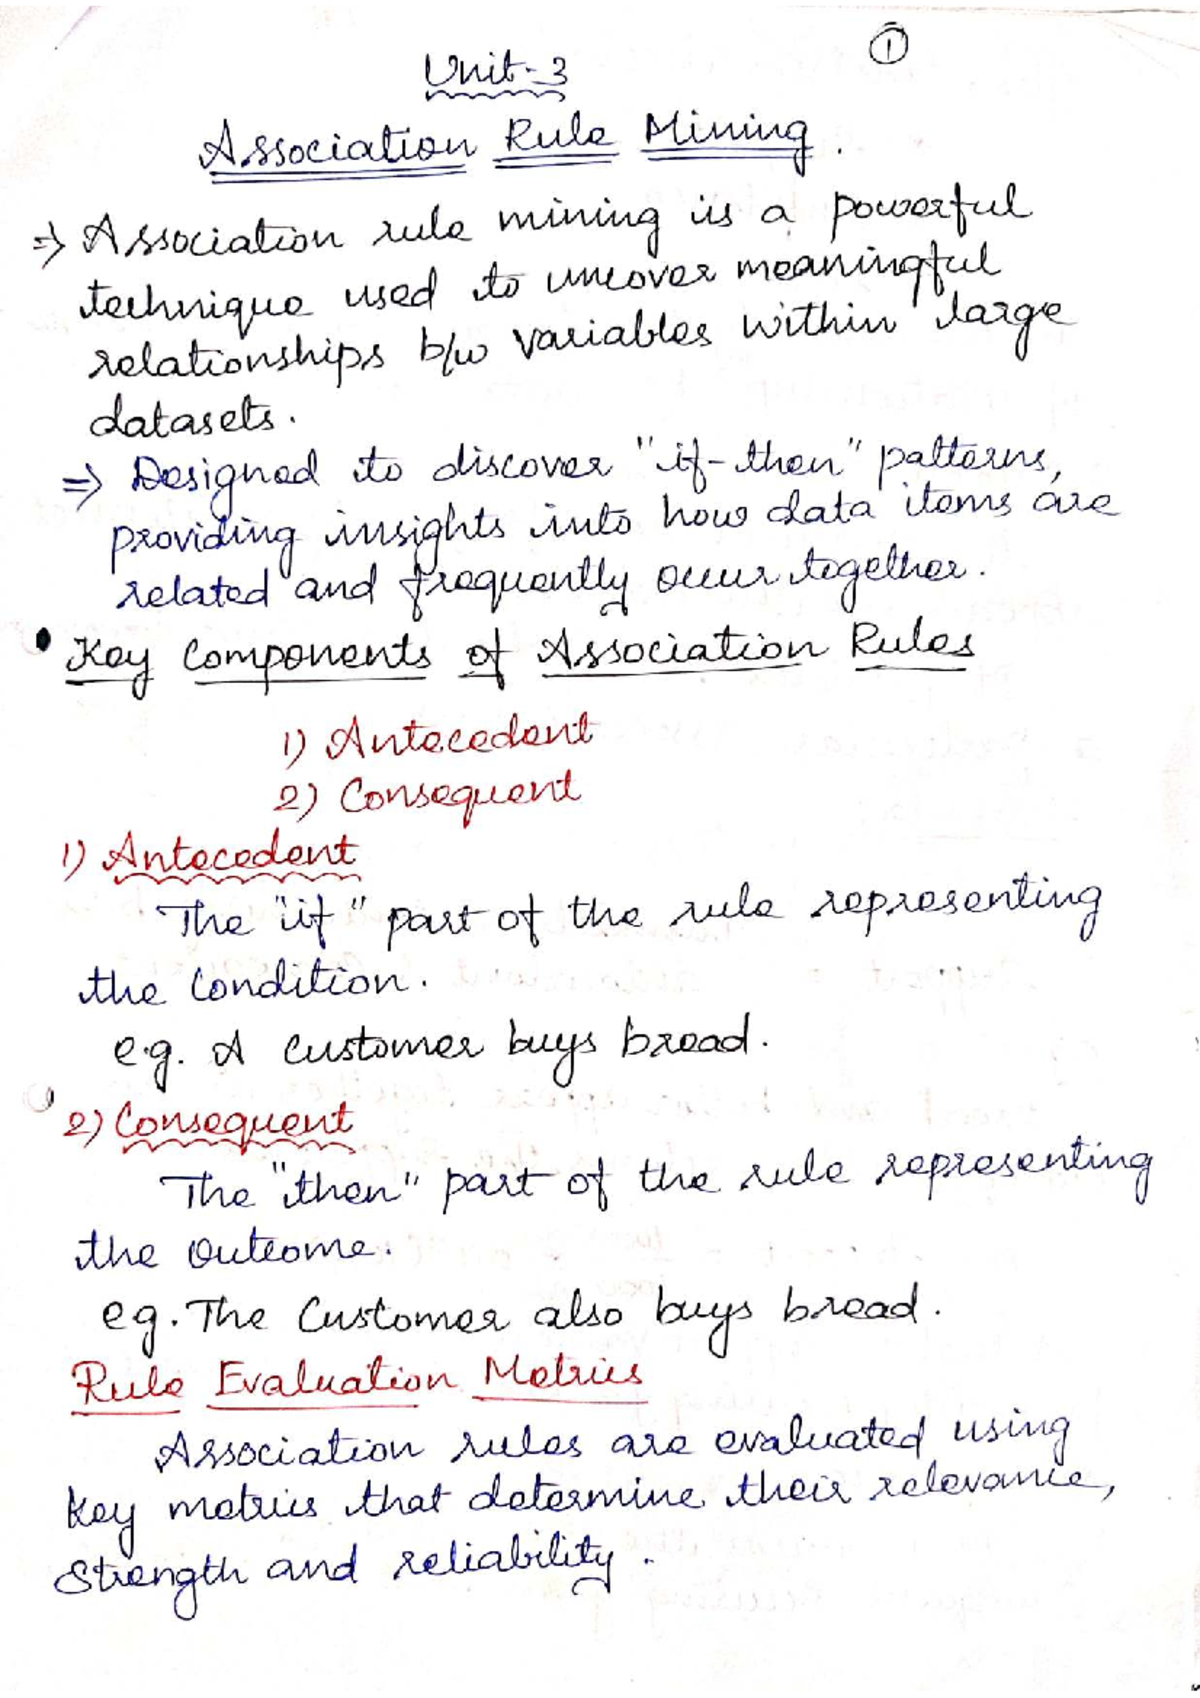 ①
Unit-3
Association Rule Mining.
⇒ Association rule mining is a powerful
technique used to uncover meaningful
relationships b/w variables within large
datasets.
⇒ Designed to discover "if-then" patterns,
providing insights into how data items are
related and frequently occur together.
• Key Components of Association Rules
1) Antecedent
2) Consequent
1) Antecedent
The "if" part of the rule representing
the condition.
e.g. A customer buys bread.
2) Consequent
The "then" part of the rule representing
the outcome.
eg. The Customer also buys bread.
Rule Evaluation Metrics
Association rules are evaluated using
key metrics that determine their relevance,
strength and reliability.